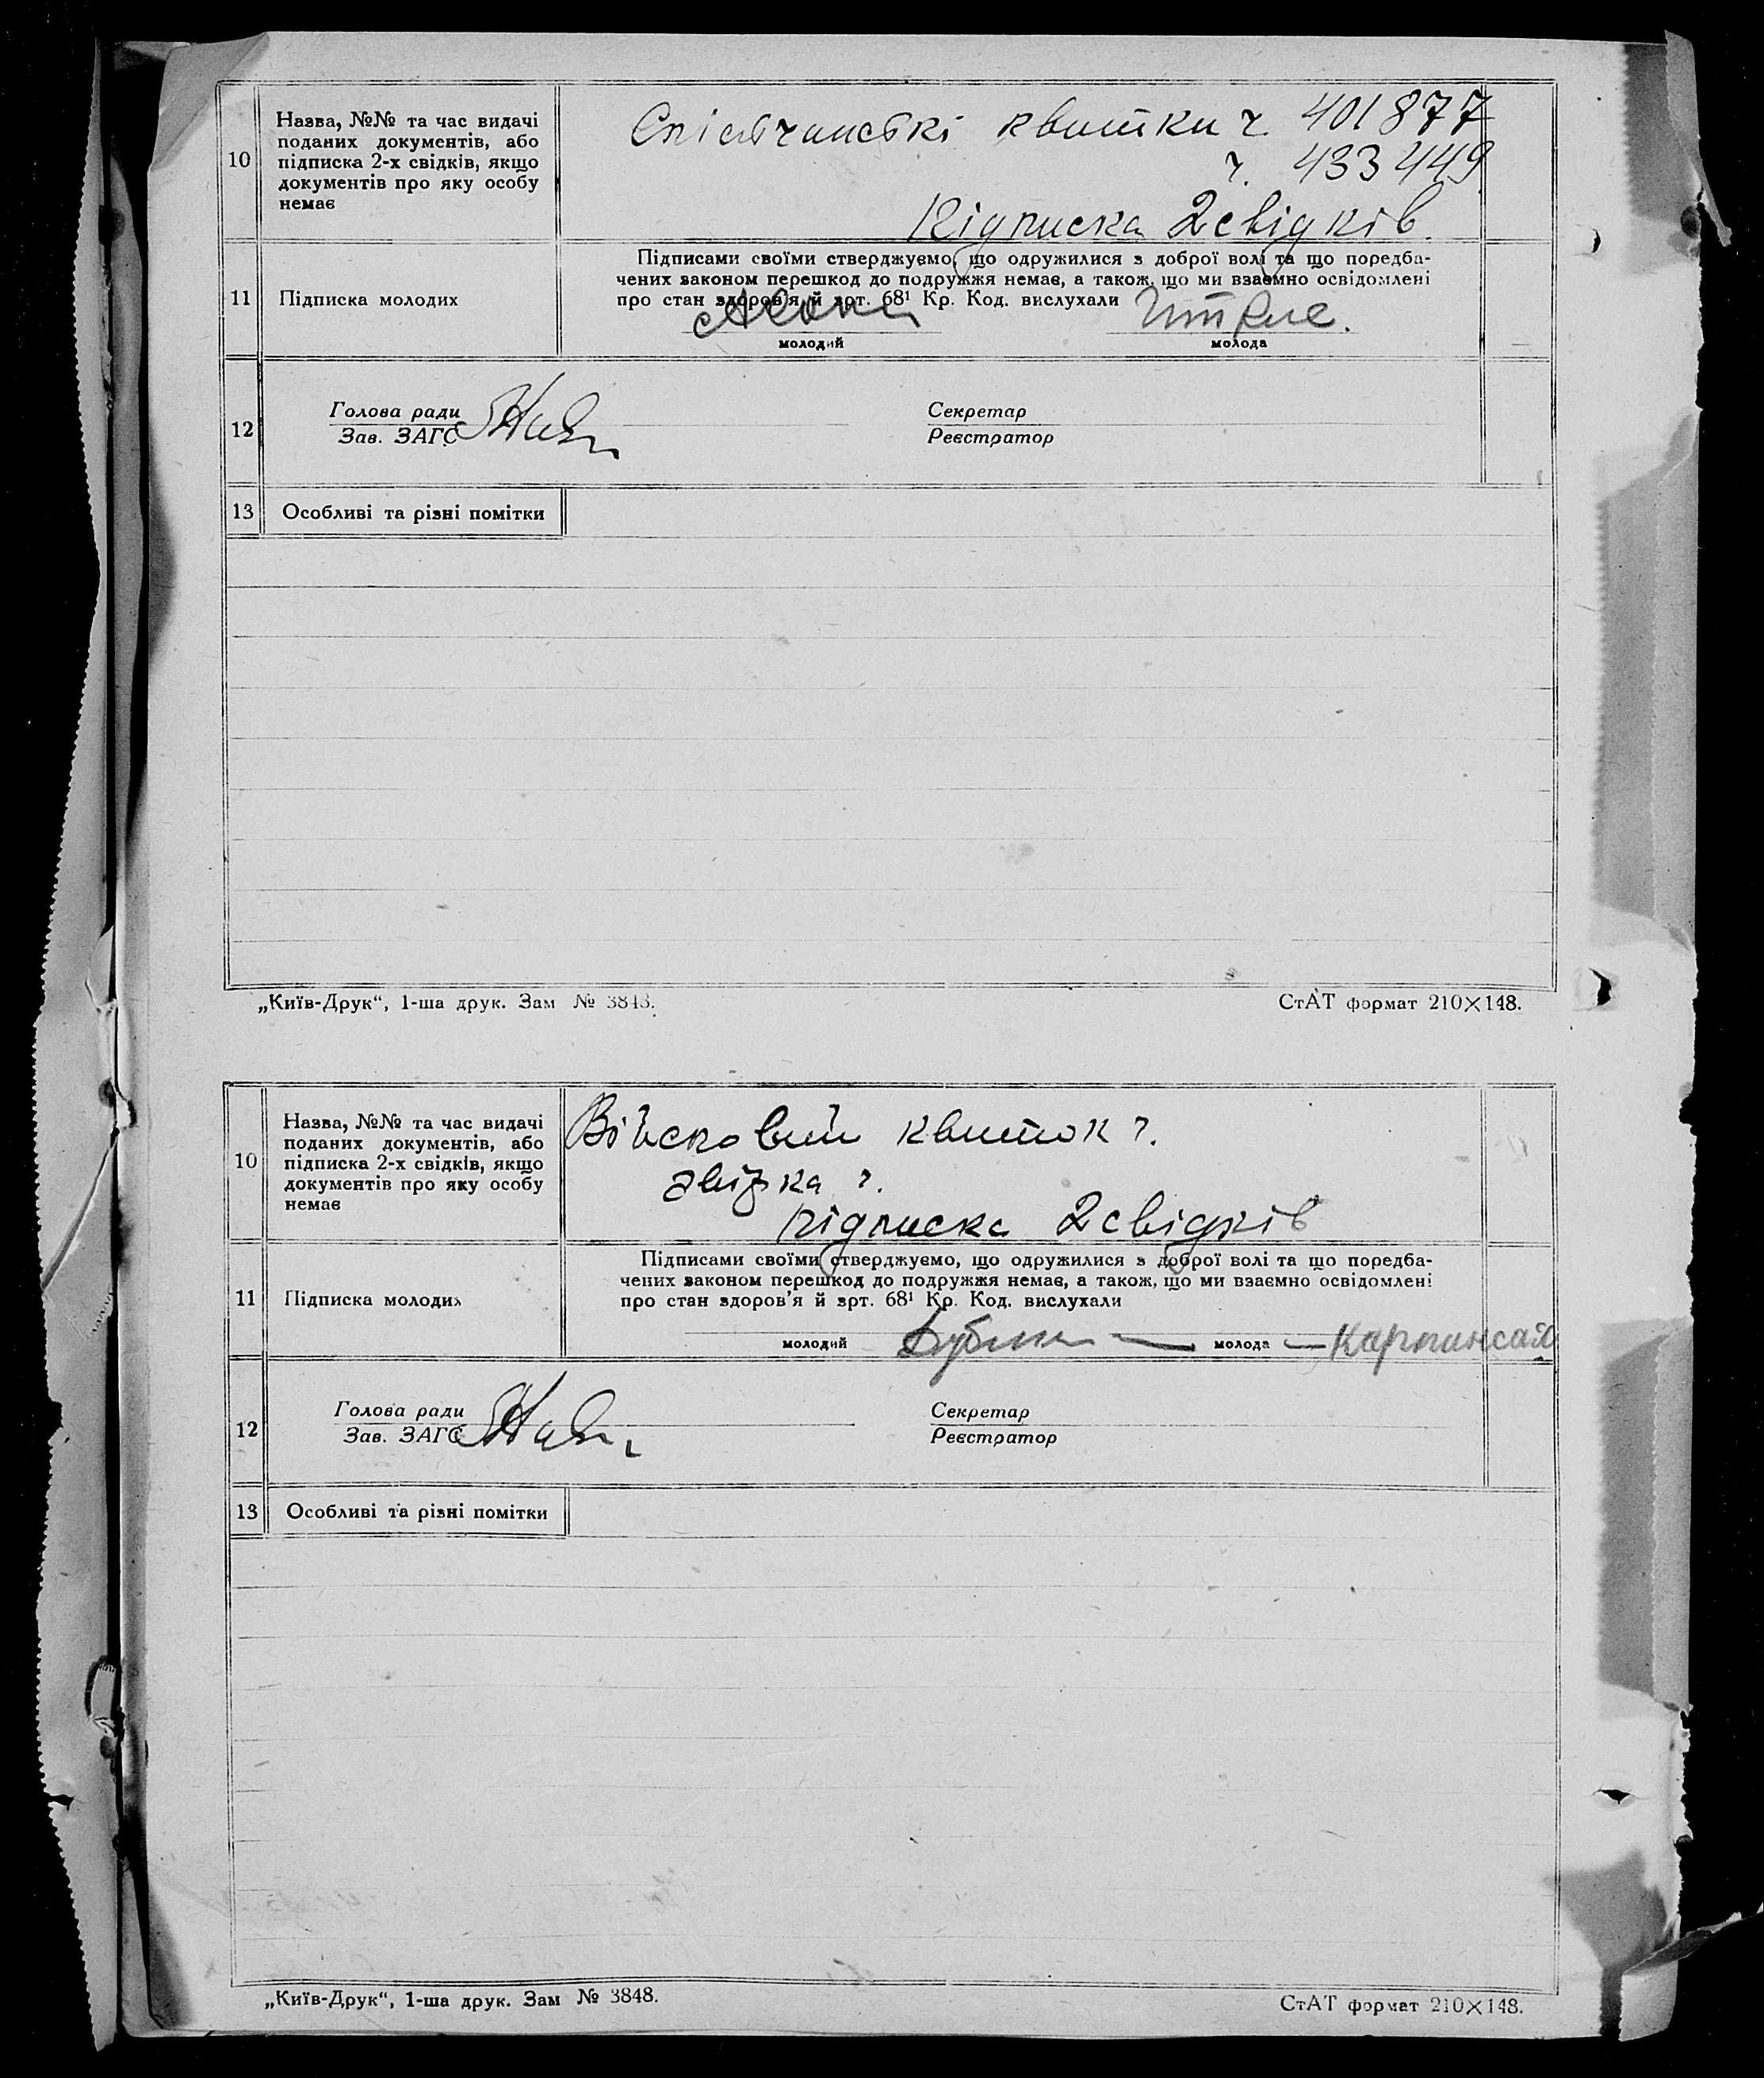 10
Назва, №№ та час видачі
поданих документів, або
підписка 2-х свідків, якщо
документів про яку особу
немає
квитки ч. 401877
ч. 433449
Підписка 2 свідків.
11
Підписка молодих
Підписами своїми стверджуємо, що одружилися з доброї волі та що поредба-
чених законом перешкод до подружжя немає, а також, що ми взаємно освідомлені
про стан здоров'я й арт. 68¹ Кр. Код. вислухали
молодий
молода
12
Голова ради
Зав. ЗАГС
Секретар
Реєстратор
13
Особливі та різні помітки
„Київ-Друк“, 1-ша друк. Зам № 3843.
СтАТ формат 210×148.
10
Назва, №№ та час видачі
поданих документів, або
підписка 2-х свідків, якщо
документів про яку особу
немає
Військовий квиток ч.
Підписка 2 свідків
11
Підписка молодих
Підписами своїми стверджуємо, що одружилися з доброї волі та що поредба-
чених законом перешкод до подружжя немає, а також, що ми взаємно освідомлені
про стан здоров'я й арт. 68¹ Кр. Код. вислухали
молодий
молода
12
Голова ради
Зав. ЗАГС
Секретар
Реєстратор
13
Особливі та різні помітки
„Київ-Друк“, 1-ша друк. Зам № 3848.
СтАТ формат 210×148.